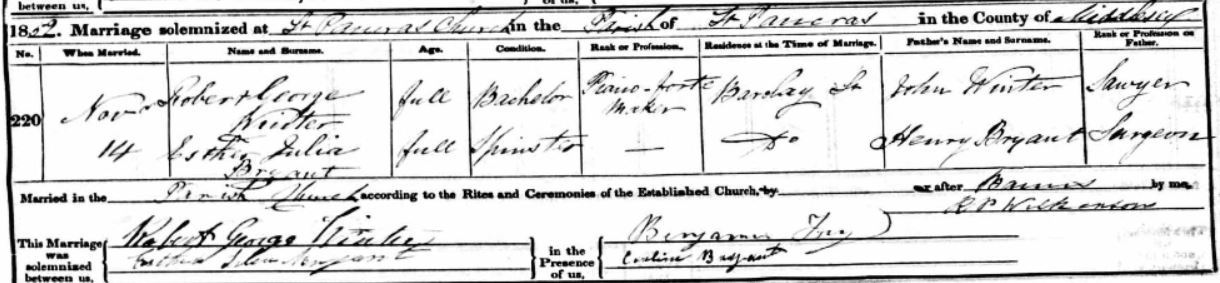 between us,
of us,
1852. Marriage solemnized at St Pancras Church in the Parish of St Pancras in the County of Middlesex
No. When Married. Name and Surname. Age. Condition. Rank or Profession. Residence at the Time of Marriage. Father's Name and Surname. Rank or Profession of Father.
220 Novr 14 Robert George Winter full Bachelor Piano-forte Maker Barclay St John Winter Sawyer
Esther Julia Bryant full Spinster — Do Henry Bryant Surgeon
Married in the Parish Church according to the Rites and Ceremonies of the Established Church, by or after Banns by me,
R P Wilkinson
This Marriage was solemnized between us, Robert George Winter in the Presence of us, Benjamin
Bryant